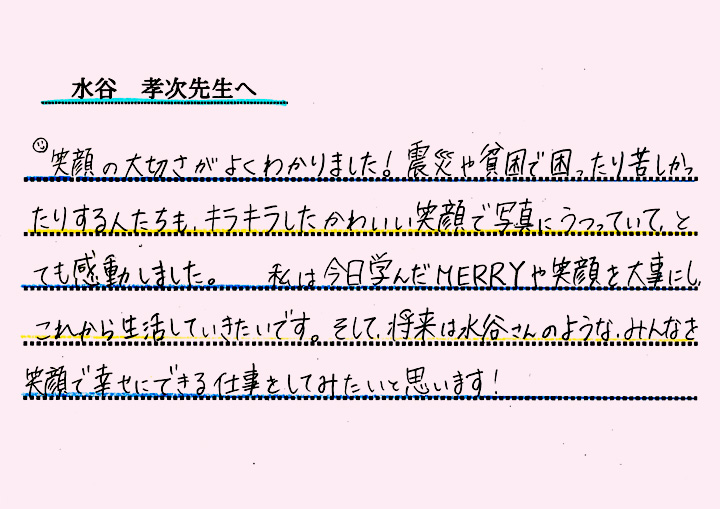 水谷 孝次先生へ
笑顔の大切さがよくわかりました！震災や貧困で困ったり苦しかっ
たりする人たちも、キラキラしたかわいい笑顔で写真にうつっていて、と
ても感動しました。 私は今日学んだMERRYや笑顔を大事にし、
これから生活していきたいです。そして、将来は水谷さんのような、みんなを
笑顔で幸せにできる仕事をしてみたいと思います！